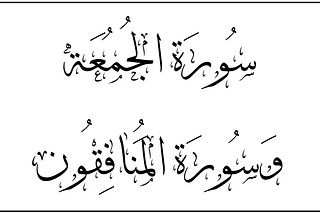 سُورَة الجُمُعَة
وَسُورَة المُنَافِقُون